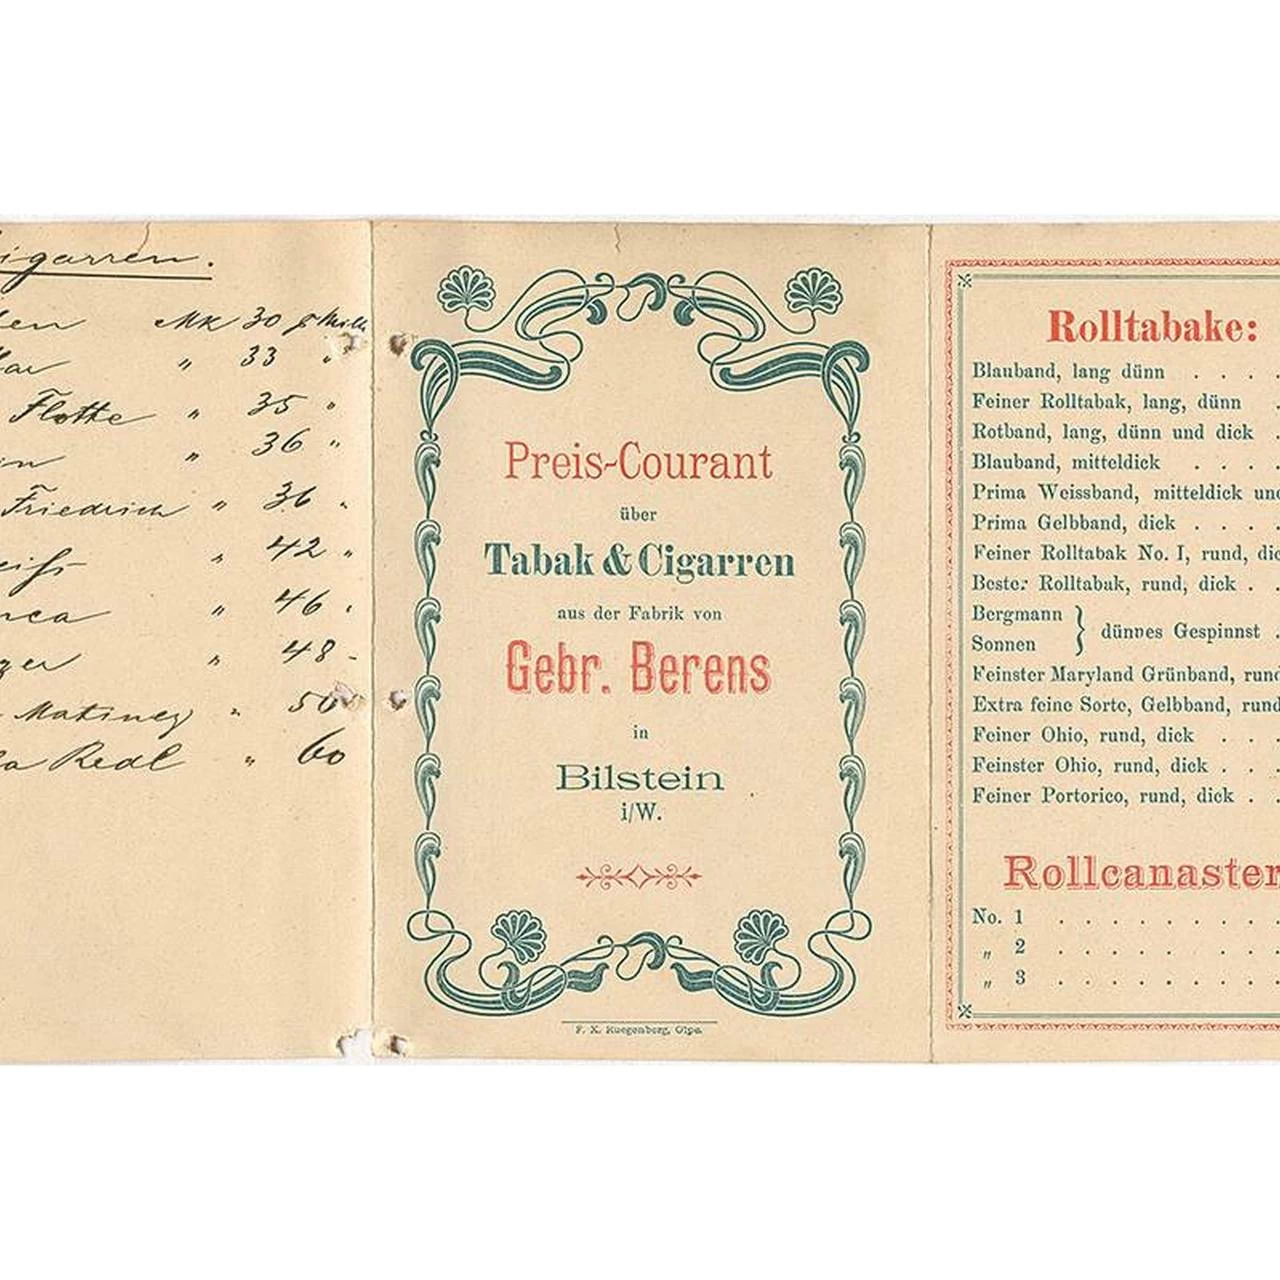 igarren.
Mk 30 p Mille
" 33 "
Flotte " 35 "
" 36 "
Friedrich " 36 "
" 42 "
" 46 "
" 48 -
Matiney " 50
Redl " 60
Preis-Courant
über
Tabak & Cigarren
aus der Fabrik von
Gebr. Berens
in
Bilstein
i/W.
F. X. Ruegenberg, Olpe.
Rolltabake:
Blauband, lang dünn . . . .
Feiner Rolltabak, lang, dünn .
Rotband, lang, dünn und dick .
Blauband, mitteldick . . . .
Prima Weissband, mitteldick und
Prima Gelbband, dick . . . .
Feiner Rolltabak No. I, rund, dic
Bester Rolltabak, rund, dick . .
Bergmann
Sonnen } dünnes Gespinnst .
Feinster Maryland Grünband, rund
Extra feine Sorte, Gelbband, rund
Feiner Ohio, rund, dick . . .
Feinster Ohio, rund, dick . . .
Feiner Portorico, rund, dick . .
Rollcanaster
No. 1 . . . . . . . . .
" 2 . . . . . . . .
" 3 . . . . . . . . .